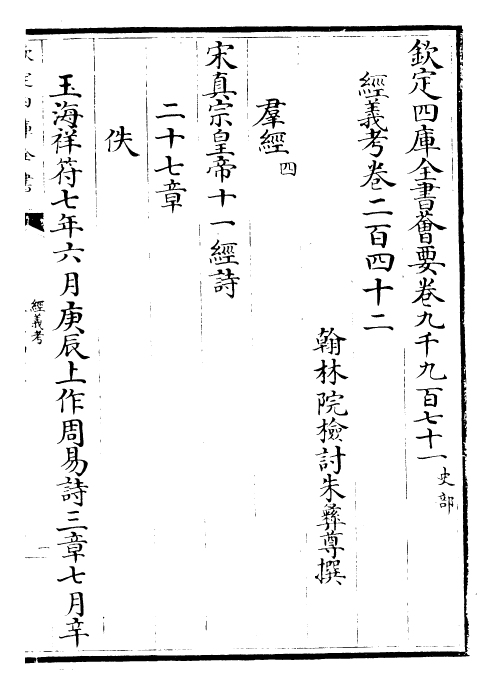 欽定四庫全書薈要卷九千九百七十一史部
經義考卷二百四十二
翰林院檢討朱彝尊撰
羣經四
宋真宗皇帝十一經詩
二十七章
佚
玉海祥符七年六月庚辰上作周易詩三章七月辛
經義考